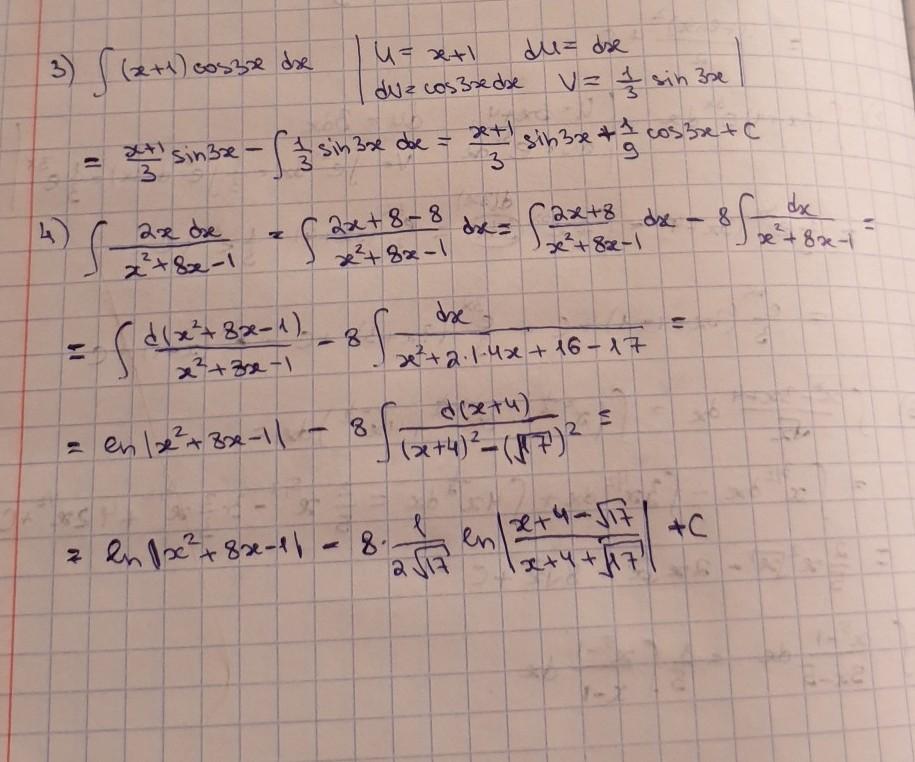 3) ∫ (x+1) cos3x dx | u = x+1 du = dx
dv = cos3x dx v = 1/3 sin 3x |
= (x+1)/3 sin3x − ∫ 1/3 sin3x dx = (x+1)/3 sin3x + 1/9 cos3x + C
4) ∫ 2x dx/(x²+8x−1) = ∫ (2x+8−8)/(x²+8x−1) dx = ∫ (2x+8)/(x²+8x−1) dx − 8∫ dx/(x²+8x−1) =
= ∫ d(x²+8x−1)/(x²+8x−1) − 8∫ dx/(x²+2·1·4x+16−17) =
= ln|x²+8x−1| − 8∫ d(x+4)/((x+4)²−(√17)²) =
= ln|x²+8x−1| − 8· 1/(2√17) ln|(x+4−√17)/(x+4+√17)| + C